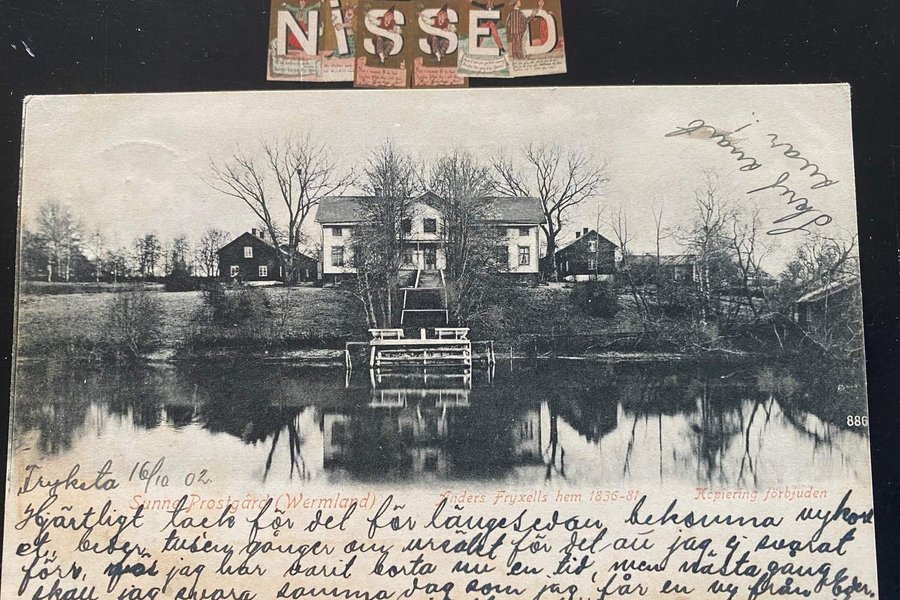 NiSSED
Skrif snart
snar i
886
Fryksta 16/10 02.
Sunne Prostgård (Wermland) Anders Fryxells hem 1836-81 Kopiering förbjuden
Hjärtligt tack för det för längesedan bekomna vykor
et, beder tusen gånger om ursäkt för det att jag ej svarat
förr, jag har varit borta nu en tid, men nästa gång
skall jag svara samma dag som jag får en ny från Eder.